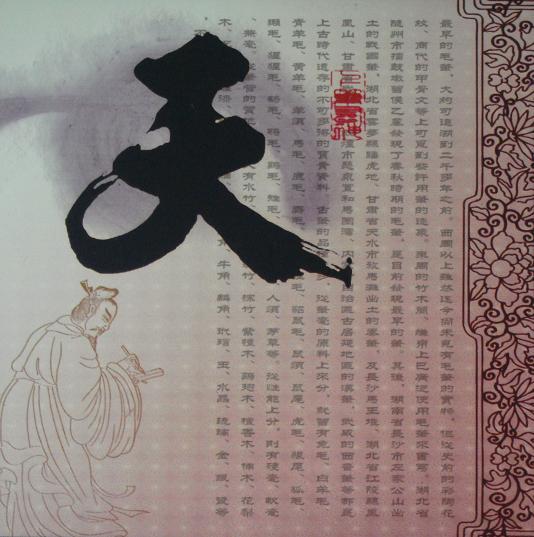 最早的毛筆，大約可追溯到二千多年之前。西周以上雖然迄今尚未見有毛筆的實物，但從史前的彩陶花
紋、商代的甲骨文等上可覓到些許用筆的迹象。東周的竹木簡、縑帛上已廣泛使用毛筆來書寫。湖北省
隨州市擂鼓墩曾侯乙墓發現了春秋時期的毛筆，是目前發現最早的筆。其後，湖南省長沙市左家公山出
土的戰國筆，湖北省雲夢縣睡虎地、甘肅省天水市放馬灘出土的秦筆，及長沙馬王堆、湖北省江陵縣鳳
凰山、甘肅 煌市懸泉置和馬圈灣、內 自治區古居延地區的漢筆，武威的西晉筆等都是
上古時代遺存的不可多得的寶貴資料。古筆的品種 從筆毫的原料上來分，就曾有兔毛、白羊毛、
青羊毛、黃羊毛、羊須、馬毛、鹿毛、麝毛、 狸毛、貂鼠毛、鼠須、鼠尾、虎毛、狼尾、狐毛、
獺毛、猩猩毛、鵝毛、鴨毛、雞毛、雉毛、 人須、茅草等。從性能上分，則有硬毫、軟毫
、兼毫。從筆管的質 有水竹、 竹、棕竹、紫檀木、雞翅木、檀香木、楠木、花梨
木、 牛角、麟角、玳瑁、玉、水晶、琉璃、金、銀、瓷等
天